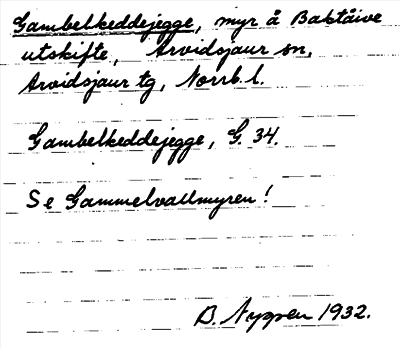 Gambelkeddejegge, myr å Baktåive
utskifte, Arvidsjaur sn,
Arvidsjaur tg, Norrb. l.
Gambelkeddejegge, G. 34.
Se Gammelvallmyren!
B. Nyppen 1932.